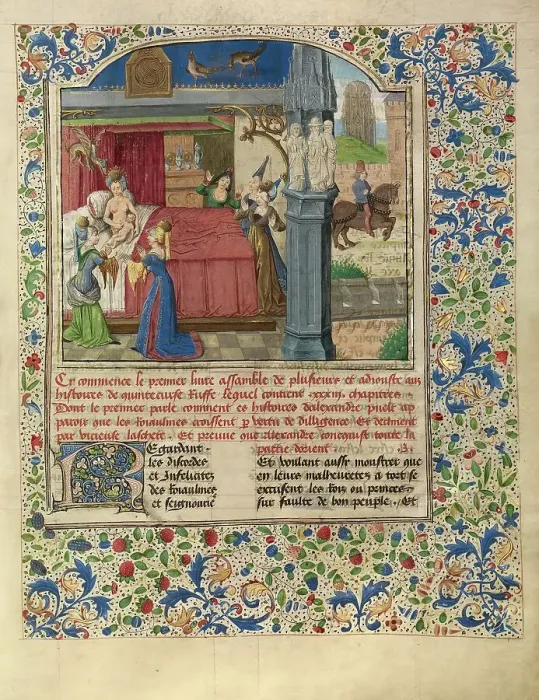 Cy commence le premier livre assamble de plusieurs et adiouste aux
histoires de quintecurse Ruffe. lequel contient .xxxiij. chapitres.
Dont le premier parle comment es histoires dalexandre puelt ap
paroir que les Roiaulmes croissent p vertu de dilligence. Et declinent
par vicieuse laschete. Et preuve que Alexandre conequist toute la
partie dorient .
REgardant
les discordes
et Infelicites
des Roiaulmes
et seignourie
Et voulant aussy monstrer que
en leurs malheuretes a tort se
excusent les Rois ou princes
sur faulte de bon peuple. Et